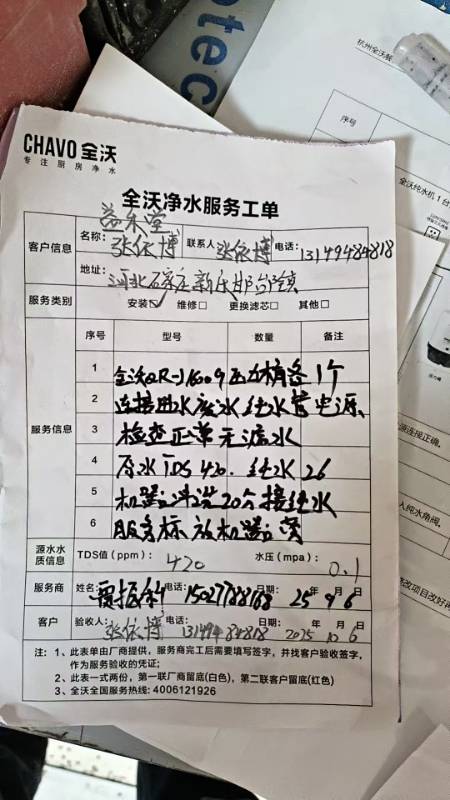 otec
杭州全沃餐
序号
CHAVO 全沃
专注厨房净水
全沃纯水机1台
全沃净水服务工单
客户信息
益禾堂
名称: 张依博 联系人 张依博 电话: 13149484818
地址: 河北石家庄新乐邯台镇
服务类别 安装☑ 维修□ 更换滤芯□ 其他□
服务信息
序号 型号 数量 备注
1 全沃QR-J1600G压力桶各1个
2 连接进水废水纯水管电源、
3 检查正常无漏水
4 原水TDS 420. 纯水26
5 机器冲洗20分接纯水
6 服务标放机器旁
源水水质信息 TDS值(ppm): 420 水压(mpa): 0.1
服务商 姓名: 电话: 15027788768 日期: 25年9月6日
客户 验收人: 张依博 电话: 13149484818 日期: 2025年10月6日
注: 1、此表单由厂商提供,服务商完工后需要填写签字,并找客户验收签字,
作为服务验收的凭证;
2、此表一式两份,第一联厂商留底(白色),第二联客户留底(红色)
3、全沃全国服务热线: 4006121926
源连接正确,
入纯水角阀,
修改项目改好再